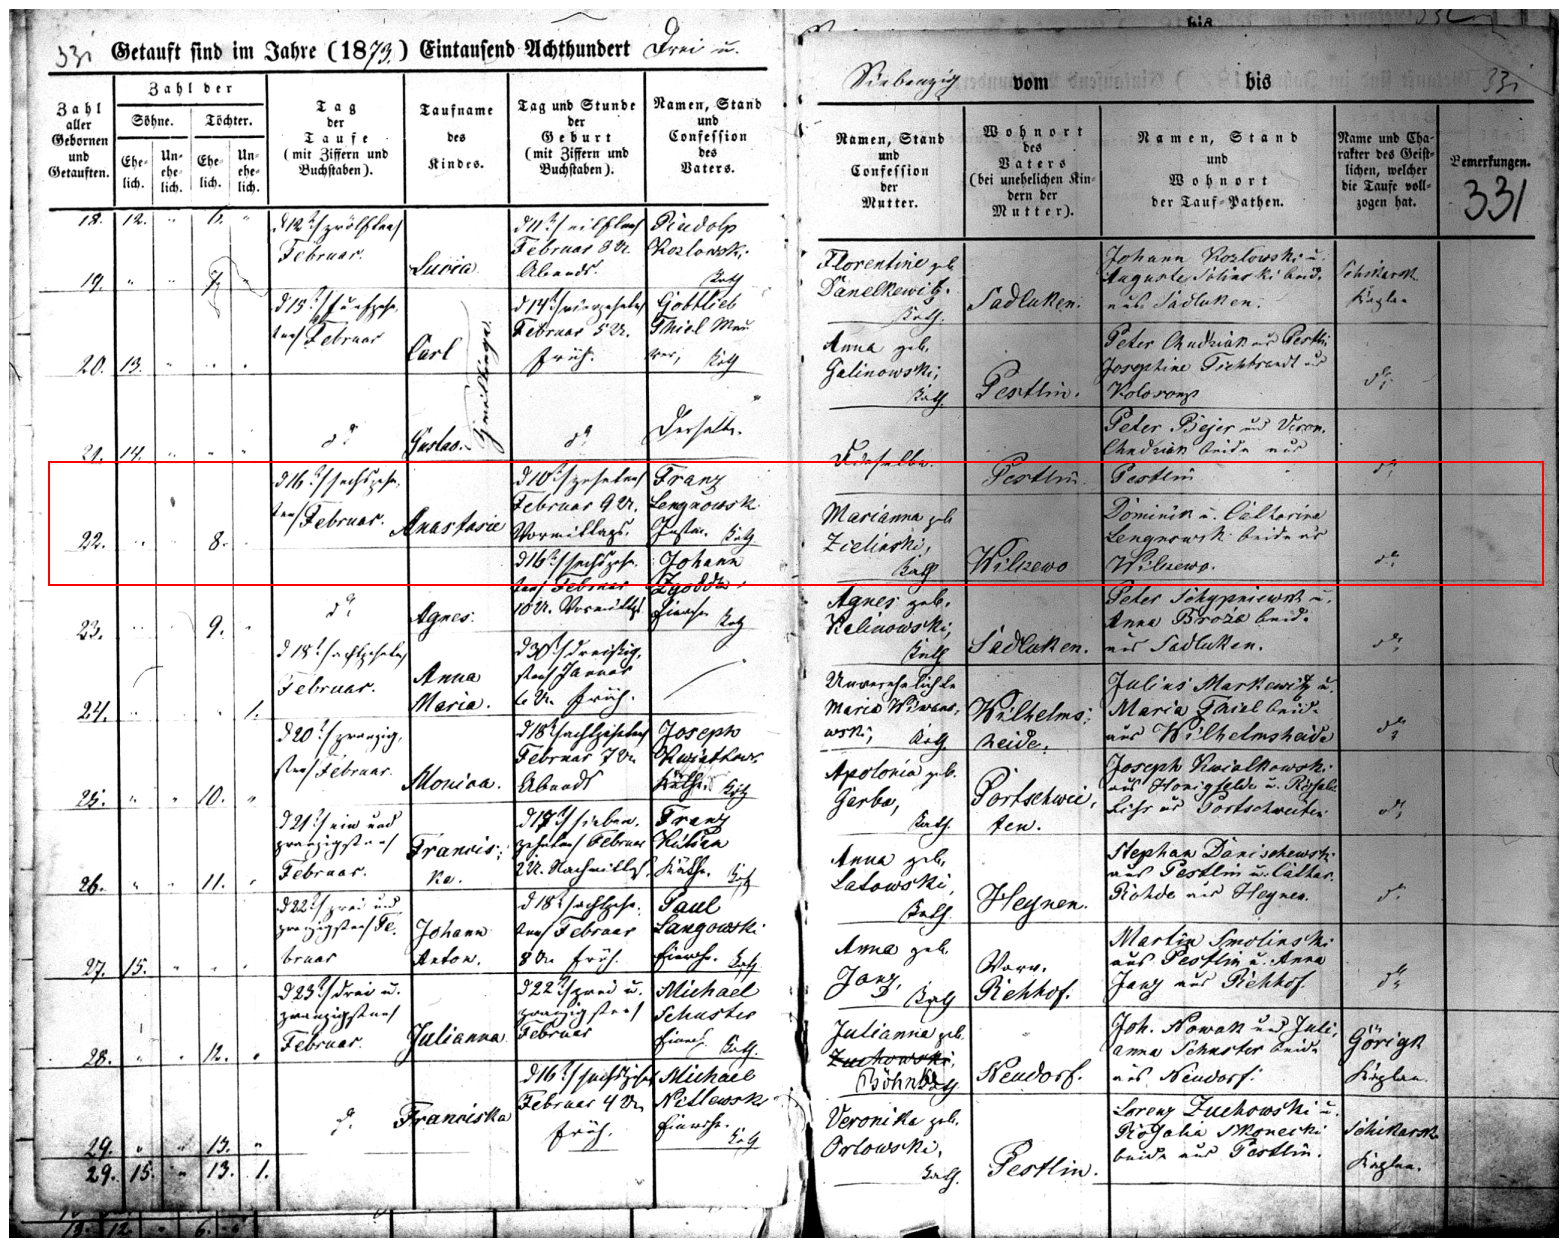 331 Getauft sind im Jahre (1873.) Eintausend Achthundert Drei u.
Siebenzig vom bis 331
Zahl aller Gebornen und Getauften.
Zahl der
Söhne. Töchter.
Ehelich. Unehelich. Ehelich. Unehelich.
Tag der Taufe (mit Ziffern und Buchstaben).
Taufname des Kindes.
Tag und Stunde der Geburt (mit Ziffern und Buchstaben).
Namen, Stand und Confession des Vaters.
Namen, Stand und Confession der Mutter.
Wohnort des Vaters (bei unehelichen Kindern der Mutter).
Namen, Stand und Wohnort der Tauf-Pathen.
Name und Charakter des Geistlichen, welcher die Taufe vollzogen hat.
Bemerkungen.
331
18. 12. " 6. "
19. " " 7.
d 12t zwölften
Februar.
Lucia
d 11t eilften
Februar 8 U.
Abends.
Rudolp
Kozlowski
Kath
Florentine geb
Danelkewitz.
Kath.
Sadluken.
Johann Kozlowski u.
Auguste beide
aus Sadluken.
Schikarsk
Kaplan
20. 13. " " "
d 15t fünfzehn
ten Februar
Carl
Zwillinge
d 14t vierzehnten
Februar 5 U.
früh.
Gottlieb
Thiel Mau
rer, Kath
Anna geb.
Galinowski,
Kath.
Pestlin.
Peter Chudziak aus Pestlin
Josephine Fichtbrandt aus
do
21. 14. " " "
do
Gustav.
do
Derselbe.
Dieselbe.
Pestlin
Peter Bejer und Veron.
Chudziak beide aus
Pestlin
do
22. " " 8.
d 16t sechszehn
ten Februar.
Anastasia
d 10t zehnten
Februar 9 U.
Vormittags.
Franz
Lengnowski
Instm. Kath
Marianna geb
Zielinski,
Kath
Wilczewo
Dominik u. Catharina
Lengnowski beide aus
Wilczewo.
do
23. " " 9. "
do
Agnes.
d 16t sechszehn
ten Februar
10 U. Vormittgs
Johann
Zgodda
Einw. Kath
Agnes geb.
Kalinowski,
Kath
Sadluken.
Peter Schypniewsk u.
Anna Broza beide
aus Sadluken.
do
24. " " " 1.
d 18t achtzehnten
Februar.
Anna
Maria.
d 30t dreißig
sten Januar
6 U. früh.
Unverehelichte
Maria
wski, Kath
Wilhelms
heide.
Julius Markewitz u.
Maria Thiel beide
aus Wilhelmsheide
do
25. " " 10. "
d 20t zwanzig
sten Februar.
Monica.
d 18t achtzehnten
Februar 7 U.
Abends
Joseph
Kwiatkows
Käthn. Kath
Apolonia geb.
Gerba,
Kath.
Portschwei
ten.
Joseph Kwiatkowski
aus Honigfelde u. Rosalie
Lihs aus Portschweiten
do
26. " " 11. "
d 21t ein und
zwanzigsten
Februar.
Francis
ka.
d 17t sieben
zehnten Februar
2 U. Nachmittgs.
Franz
Kilian
Käthn. Kath
Anna geb.
Latowski,
Kath
Heynen.
Stephan Danischewski
aus Pestlin u. Cathar.
Rohde aus Heynen.
do
27. 15. " " "
d 22t zwei und
zwanzigsten Fe
bruar
Johann
Anton.
d 18t achtzehn
ten Februar
8 U. früh.
Paul
Langowski
Einw. Kath
Anna geb.
Janz,
Kath
Vorw.
Rehhof.
Martin Smolinski
aus Pestlin u. Anna
Janz aus Rehhof.
do
28. " " 12. "
d 23t drei u.
zwanzigsten
Februar.
Julianna
d 22t zwei u.
zwanzigsten
Februar
Michael
Schuster
Einw. Kath.
Julianna geb.
Zuchowski,
Böhnke Kath
Neudorf.
Joh. Nowak und Juli
anna Schuster beide
aus Neudorf.
Görigk
Kaplan.
29. " " 13. "
do
Franciska
d 16t sechszehn
Februar 4 U.
früh.
Michael
Netlewski
Einw.
Kath
Veronika geb.
Orlowski,
Kath.
Pestlin.
Lorenz Zuchowski u.
Rosalia Skonecki
beide aus Pestlin.
Schikarsk
Kaplan.
29. 15. " 13. 1.